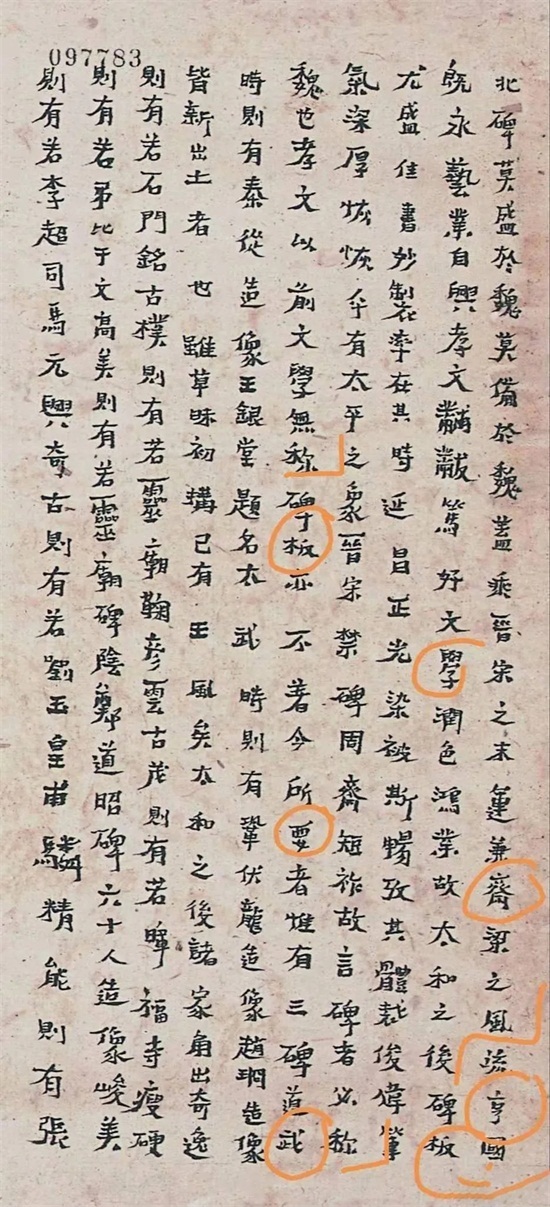 097783
北碑莫盛於魏莫備於魏蓋乘晉宋之末運兼齊梁之風流享國
旣永藝業自興孝文黼黻篤好文學潤色鴻業故太和之後碑板
尤盛佳書妙製率在其時延昌正光染被斯暢攷其體裁俊偉筆
氣深厚恢恢乎有太平之象晉宋禁碑周齊短祚故言碑者必称
魏也孝文以前文學無称碑板亦不著今所要者惟有三碑道武
時則有秦從造像王銀堂題名太武時則有鞏伏龍造像趙珊造像
皆新出土者也雖草昧初構已有王風矣太和之後諸家角出奇逸
則有若石門銘古樸則有若靈廟鞠彥雲古茂則有若暉福寺瘦硬
則有若弔比干文高美則有若靈廟碑陰鄭道昭碑六十人造像峻美
則有若李超司馬元興奇古則有若劉玉皇甫驎精能則有張